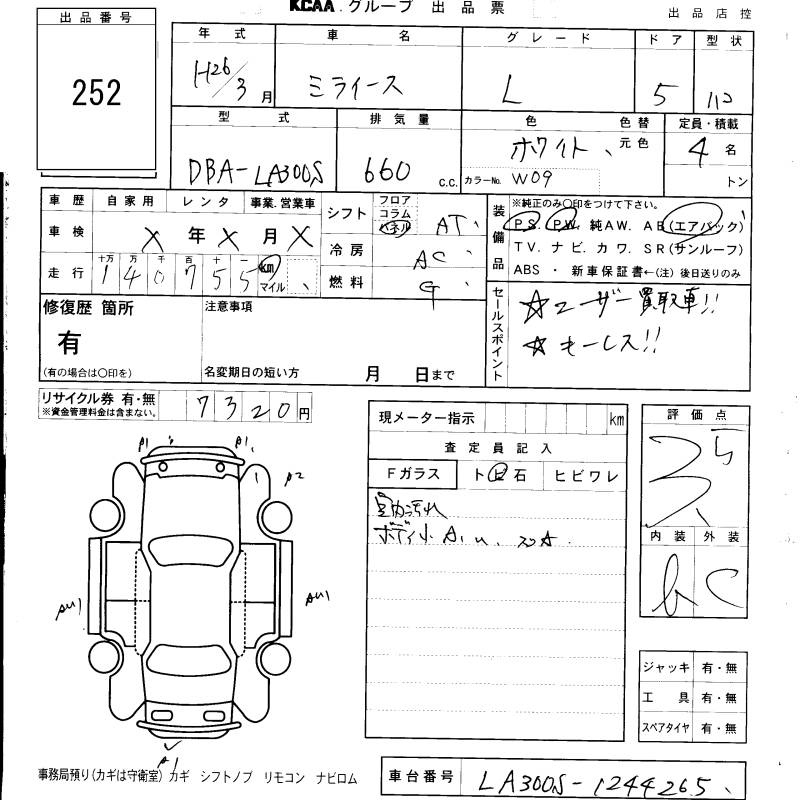 KCAA.グループ 出品票
出品店控
出品番号
252
年式 車名 グレード ドア 型状
H26/3月 ミライース L 5 112
型式 排気量 色 色替 定員・積載
DBA-LA300S 660 c.c. ホワイト、 元色 4名
カラーNo. W09 トン
車歴 自家用 レンタ 事業.営業車
車検 X年X月X
走行 十万 万 千 百 十 一
140755 km マイル
シフト フロア コラム パネル AT
冷房 AC
燃料 G
装備品
※純正のみ〇印をつけて下さい。
PS. PW. 純AW. AB(エアバック)
TV. ナビ. カワ. SR(サンルーフ)
ABS ・ 新車保証書←(注)後日送りのみ
修復歴 箇所
有
(有の場合は〇印を)
注意事項
名変期日の短い方 月 日まで
セールスポイント
☆ユーザー買取車!!
☆キーレス!!
リサイクル券 有・無 7320円
※資金管理料金は含まない。
現メーター指示 km
査定員記入
Fガラス トビ石 ヒビワレ
室内汚れ
ボディ小A.U.
評価点
内装 外装
b C
A1 A1
A2
AU1 AU1
A1
ジャッキ 有・無
工具 有・無
スペアタイヤ 有・無
事務局預り(カギは守衛室) カギ シフトノブ リモコン ナビロム
車台番号 LA300S-1244265